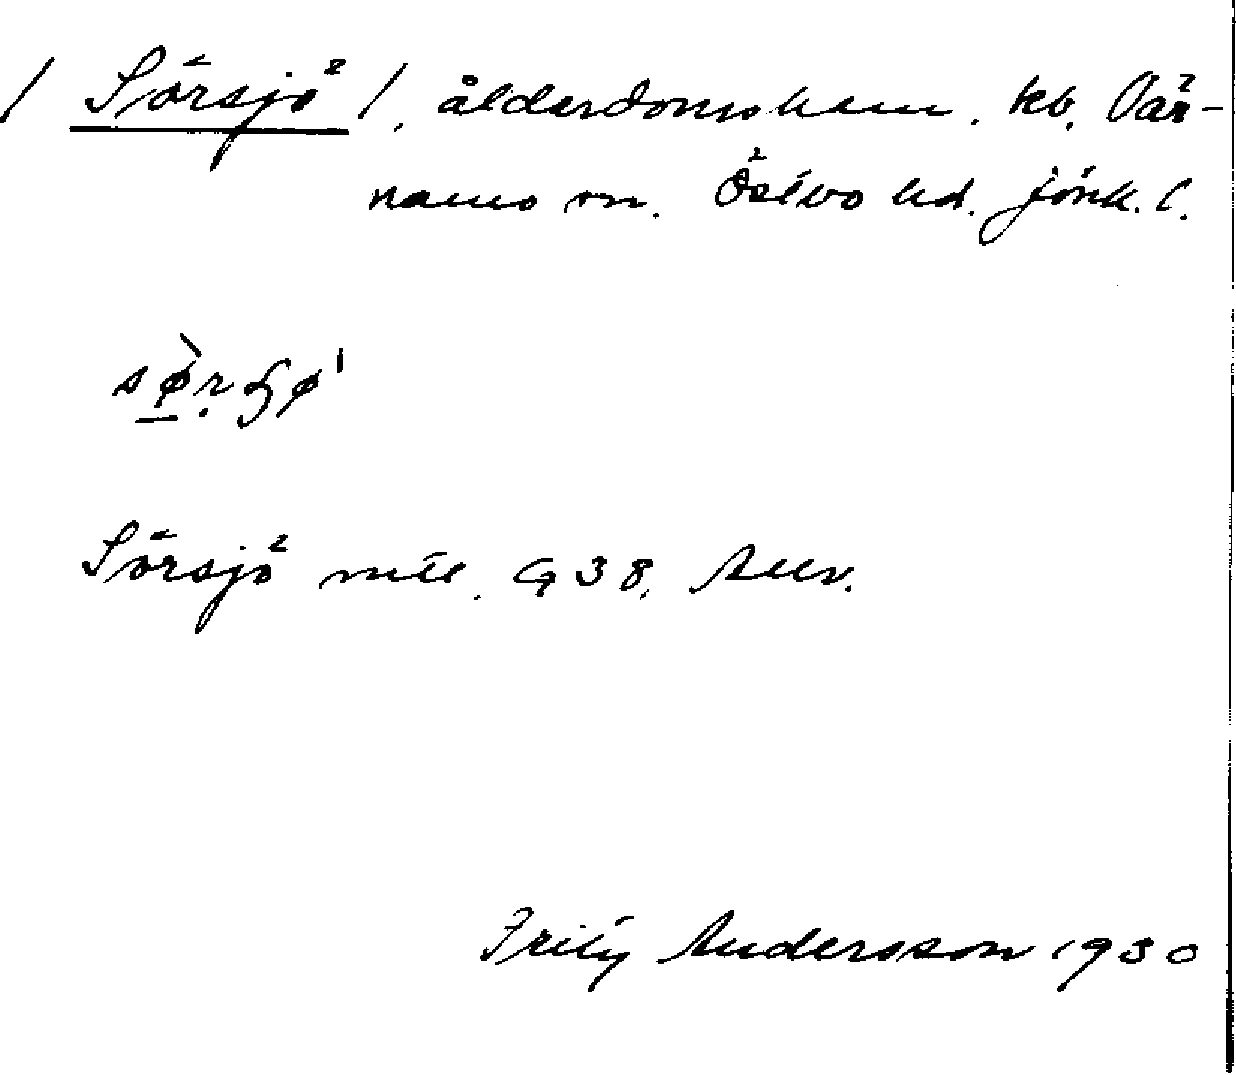 / Sörsjö /, ålderdomshem. kb. Vär-
namo sn. Östbo hd. Jönk. l.
Sörsjö mtl. G 38. Allm.
Fritz Andersson 1930